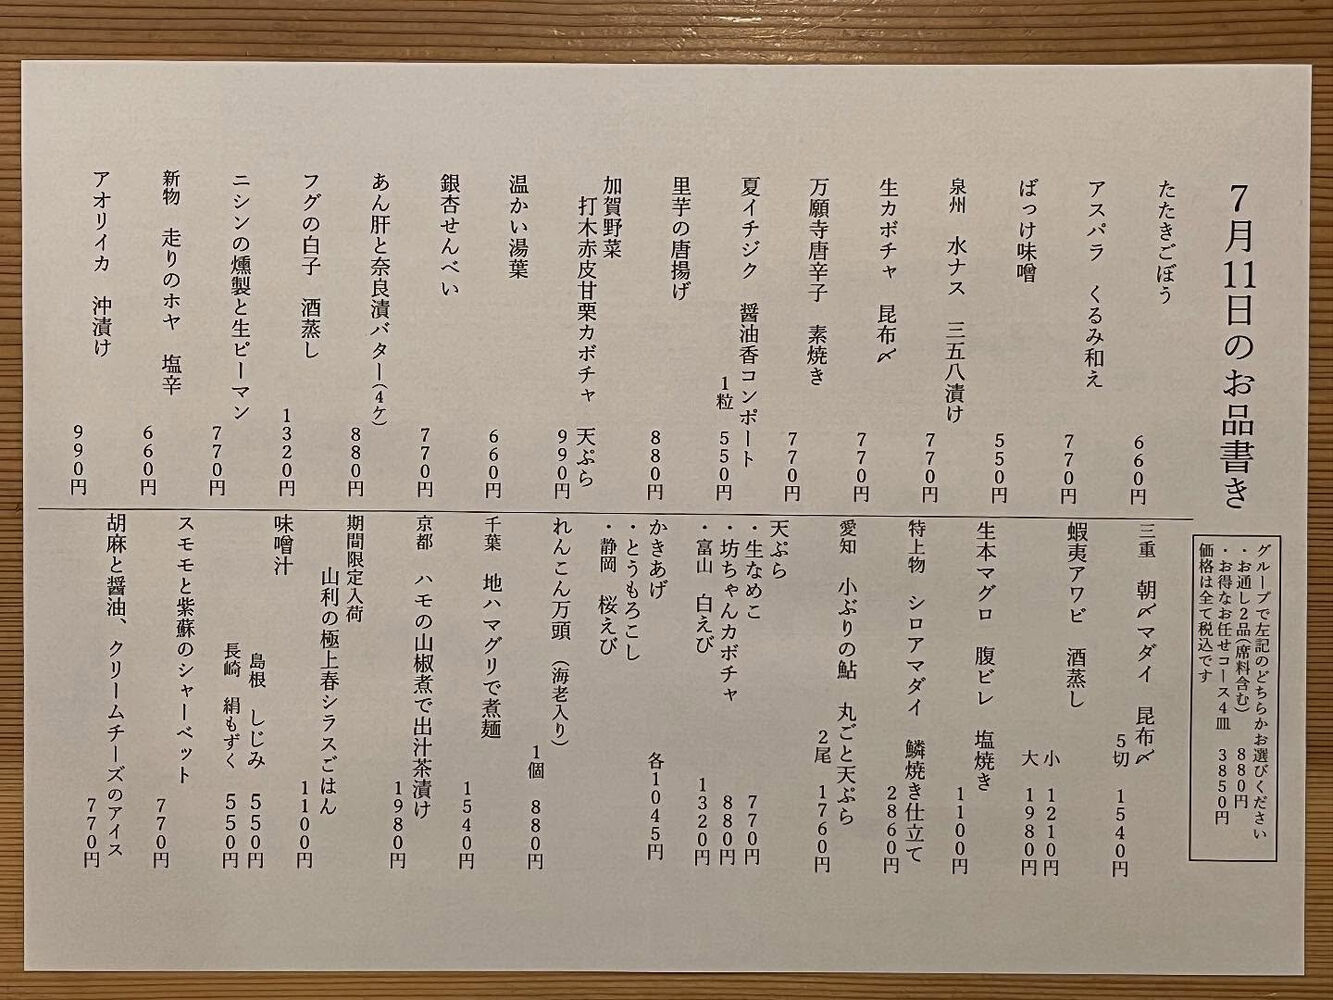 7月11日のお品書き
グループで左記のどちらかお選びください
・お通し2品(席料含む) 880円
・お得なお任せコース4皿 3850円
価格は全て税込です
たたきごぼう 660円
アスパラ くるみ和え 770円
ばっけ味噌 550円
泉州 水ナス 三五八漬け 770円
生カボチャ 昆布〆 770円
万願寺唐辛子 素焼き 770円
夏イチジク 醤油香コンポート
1粒 550円
里芋の唐揚げ 880円
加賀野菜
打木赤皮甘栗カボチャ 天ぷら
990円
温かい湯葉 660円
銀杏せんべい 770円
あん肝と奈良漬バター(4ケ) 880円
フグの白子 酒蒸し 1320円
ニシンの燻製と生ピーマン 770円
新物 走りのホヤ 塩辛 660円
アオリイカ 沖漬け 990円
三重 朝〆マダイ 昆布〆
5切 1540円
蝦夷アワビ 酒蒸し
小 1210円
大 1980円
生本マグロ 腹ビレ 塩焼き 1100円
特上物 シロアマダイ 鱗焼き仕立て 2860円
愛知 小ぶりの鮎 丸ごと天ぷら
2尾 1760円
天ぷら
・生なめこ 770円
・坊ちゃんカボチャ 880円
・富山 白えび 1320円
かきあげ
・とうもろこし
・静岡 桜えび
各1045円
れんこん万頭 (海老入り)
1個 880円
千葉 地ハマグリで煮麺 1540円
京都 ハモの山椒煮で出汁茶漬け 1980円
期間限定入荷
山利の極上春シラスごはん 1100円
味噌汁
島根 しじみ 550円
長崎 絹もずく 550円
スモモと紫蘇のシャーベット 770円
胡麻と醤油、クリームチーズのアイス 770円